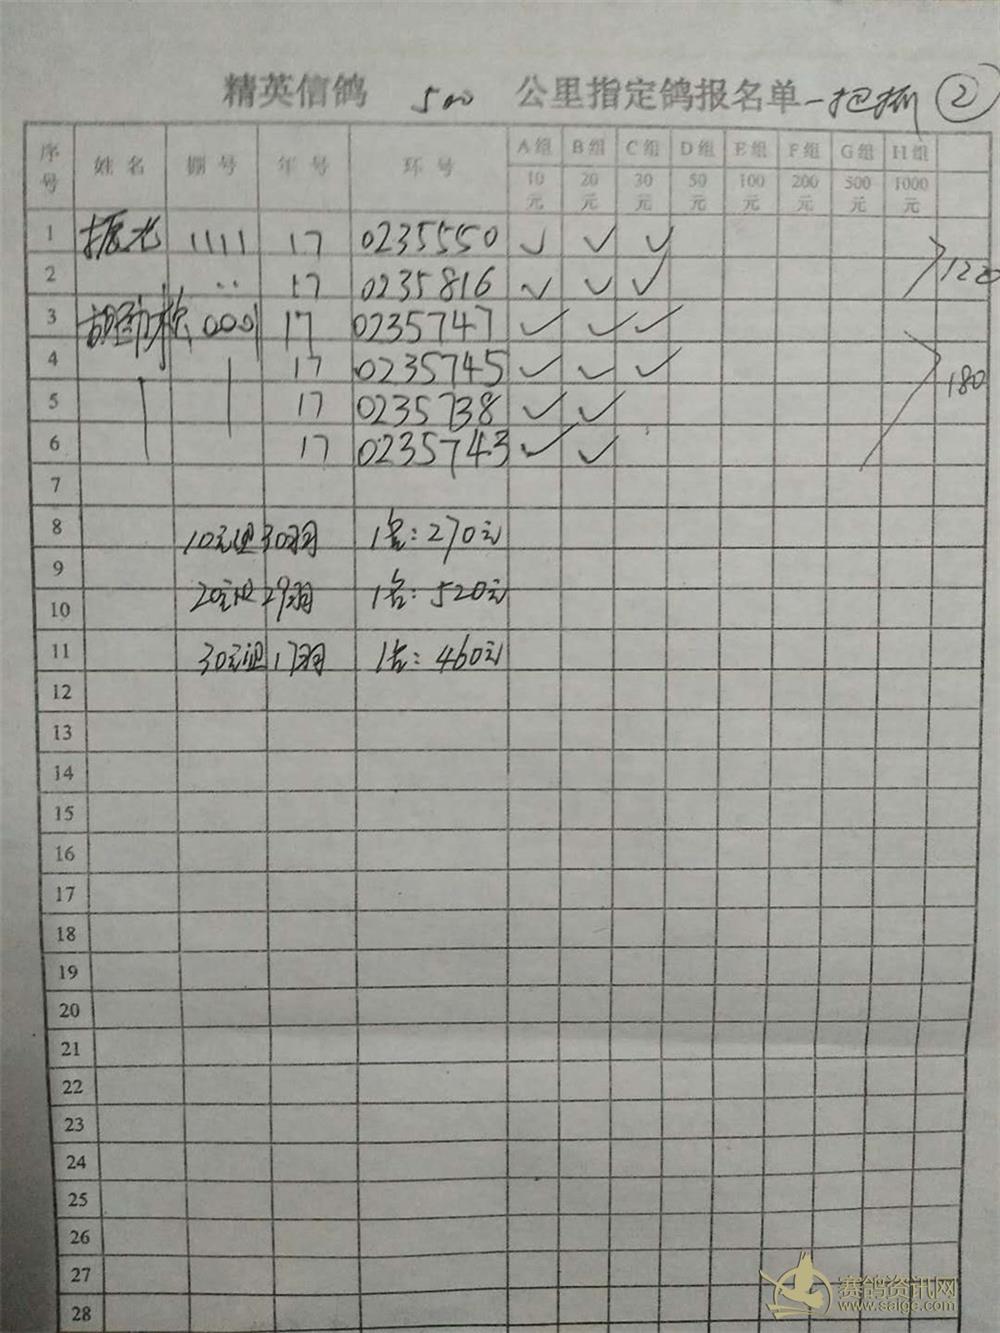 精英信鸽 500 公里指定鸽报名单 一把抓 ②
序号 姓名 棚号 年号 环号 A组 B组 C组 D组 E组 F组 G组 H组
10元 20元 30元 50元 100元 200元 500元 1000元
1 振龙 1111 17 0235550 ✓ ✓ ✓
2 17 0235816 ✓ ✓ ✓ 120
3 胡劲松 0001 17 0235747 ✓ ✓ ✓
4 17 0235745 ✓ ✓ ✓ 180
5 17 0235738 ✓ ✓
6 17 0235743 ✓ ✓
7
8 10元组 30羽 1名：270元
9
10 20元组 29羽 1名：520元
11 30元组 17羽 1名：460元
12
13
14
15
16
17
18
19
20
21
22
23
24
25
26
27
28
赛鸽资讯网
www.saige.com